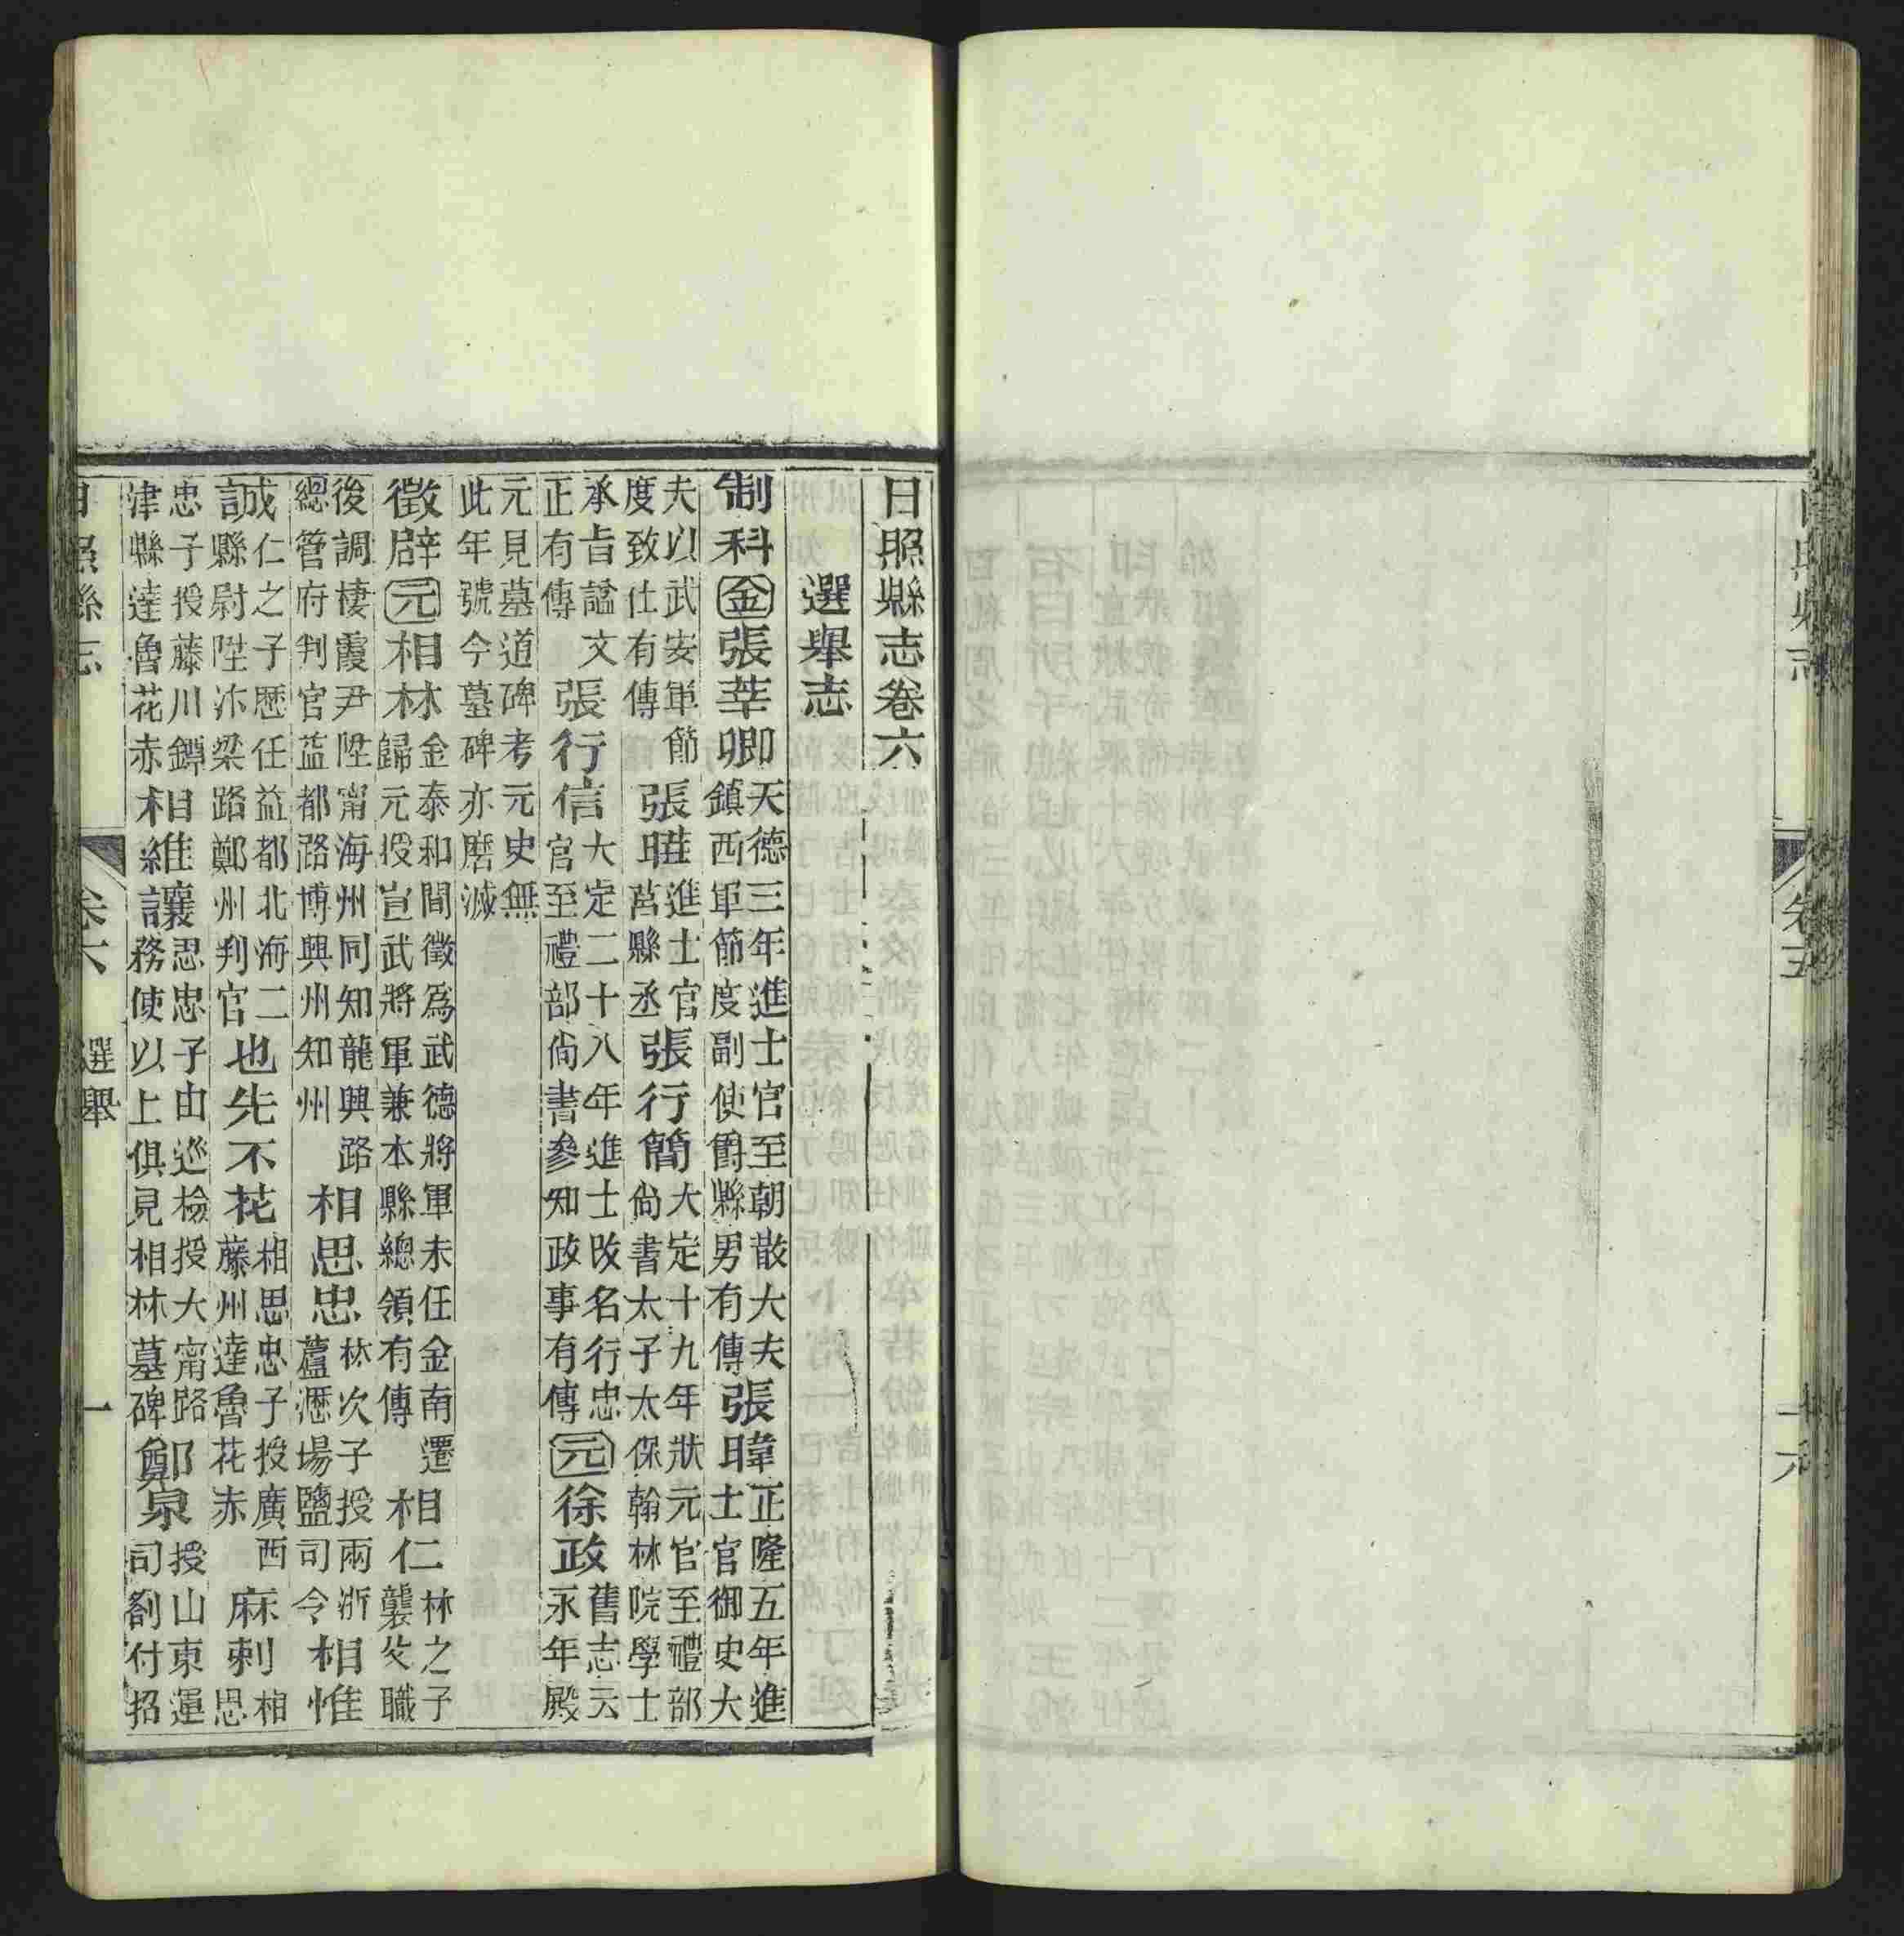 卷五
十六
日照縣志卷六
選舉志
制科金張莘卿天德三年進士官至朝散大夫鎮西軍節度副使爵縣男有傳張暐正隆五年進士官御史大
夫以武安軍節度致仕有傳張暀進士官莒縣丞張行簡大定十九年狀元官至禮部尚書太子太保翰林院學士
承旨諡文正有傳張行信大定二十八年進士改名行忠官至禮部尚書參知政事有傳元徐政舊志云永年殿
元見墓道碑考元史無此年號今墓碑亦磨滅
徵辟元相林金泰和間徵爲武德將軍未任金南遷歸元授宣武將軍兼本縣總領有傳相仁林之子襲父職
後調棲霞尹陞甯海州同知龍興路總管府判官益都路博興州知州相思忠林次子授兩浙蘆瀝場鹽司令相惟
誠仁之子歷任益都北海二縣尉陞汴梁路鄭州判官也先不花相思忠子授廣西藤州達魯花赤麻剌相思
忠子授藤川鐔津縣達魯花赤相維讓忍忠子由巡檢授大甯路務使以上俱見相林墓碑鄭泉授山東運司劄付招
日照縣志
卷六
選舉
一